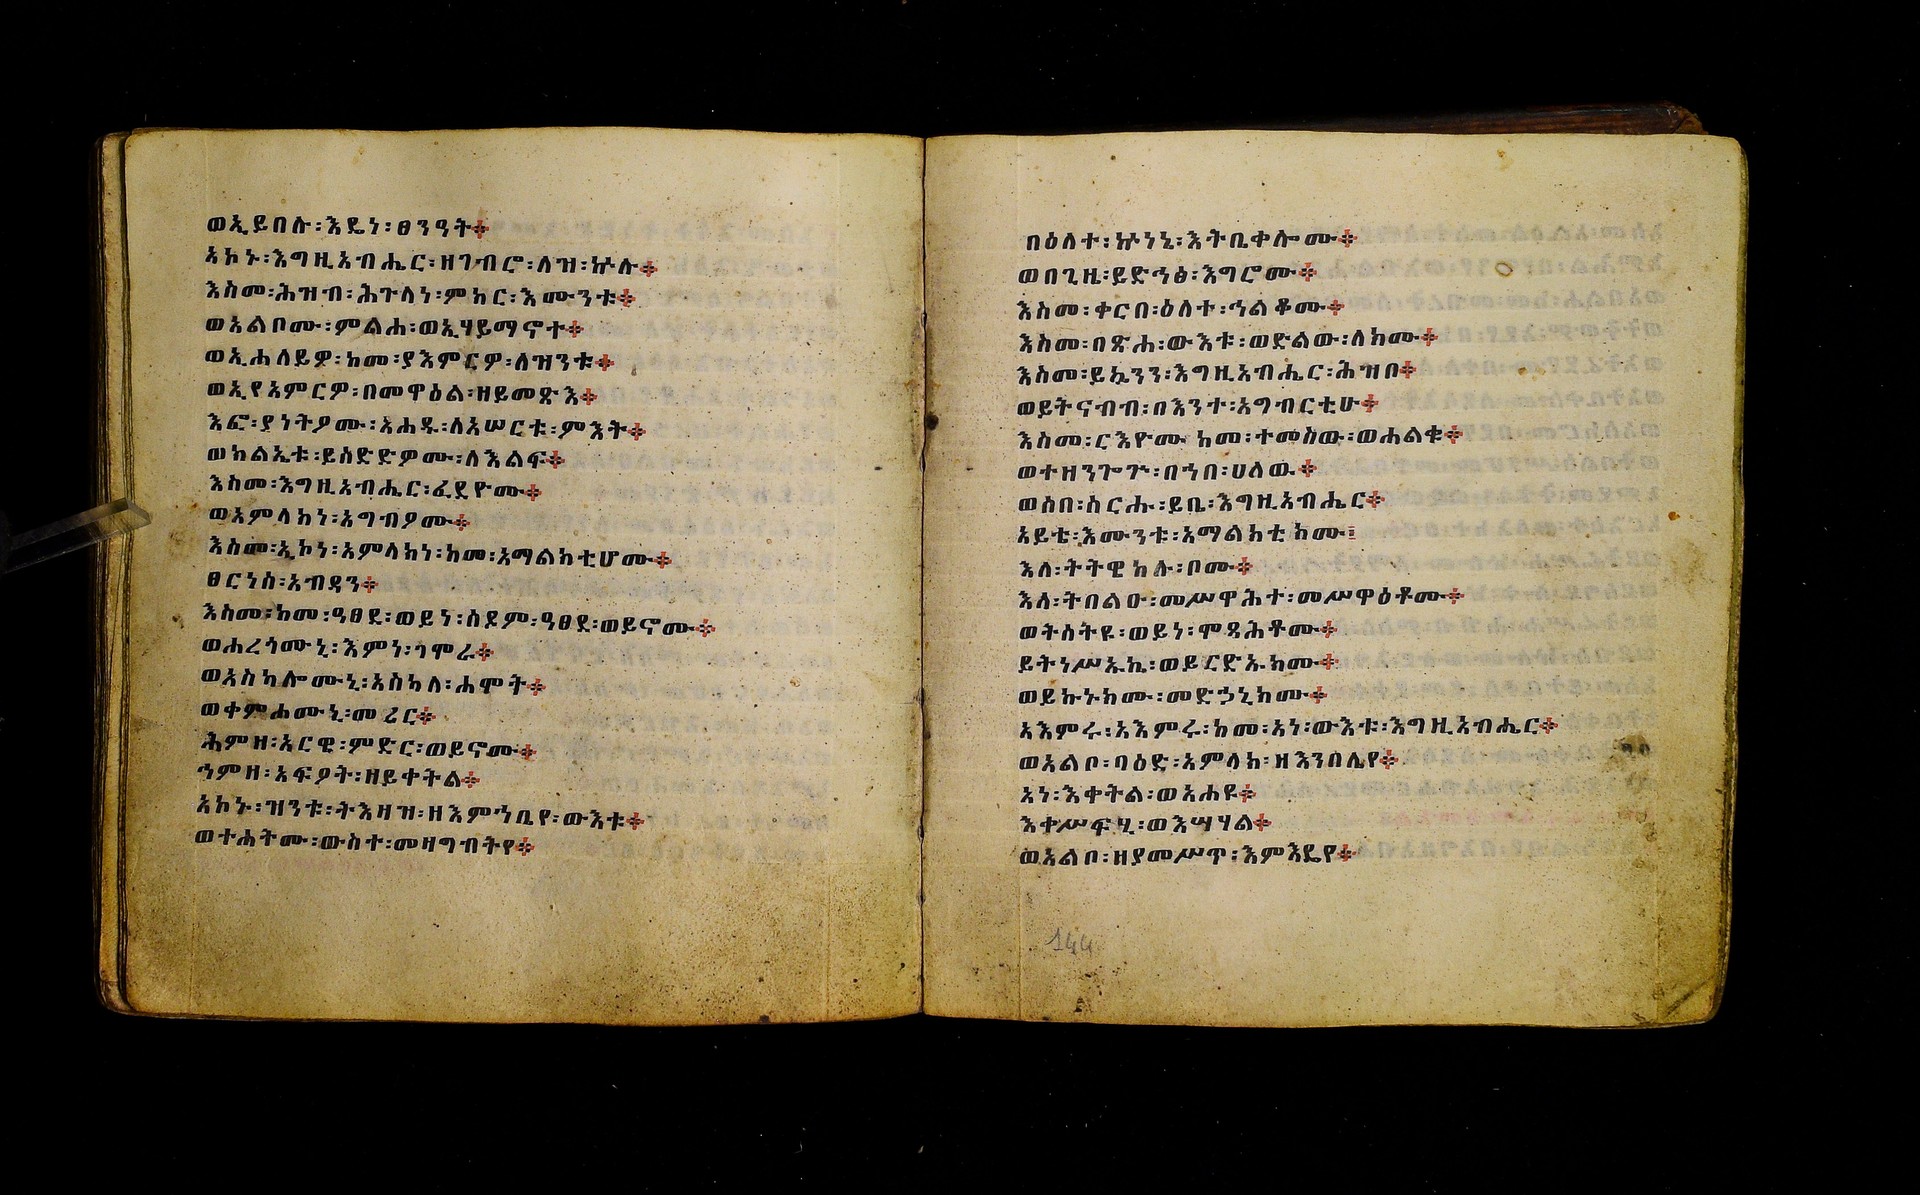 ወኢይበሉ፡እዴነ፡ፀንዓት፨
አኮኑ፡እግዚአብሔር፡ዘገብሮ፡ለዝ፡ኵሉ፨
እስመ፡ሕዝብ፡ሕጉላነ፡ምክር፡እሙንቱ፨
ወአልቦሙ፡ምልሐ፡ወኢሃይማኖተ፨
ወኢሐለይዎ፡ከመ፡ያእምርዎ፡ለዝንቱ፨
ወኢየአምርዎ፡በመዋዕል፡ዘይመጽእ፨
እፎ፡ያነትዖሙ፡አሐዱ፡ለአሠርቱ፡ምእት፨
ወክልኤቱ፡ይሰድድዎሙ፡ለእልፍ፨
እስመ፡እግዚአብሔር፡ፈደዮሙ፨
ወአምላክነ፡አግብዖሙ፨
እስመ፡ኢኮነ፡አምላክነ፡ከመ፡አማልክቲሆሙ፨
ፀርነሰ፡አብዳን፨
እስመ፡ከመ፡ዓፀደ፡ወይነ፡ሰዶም፡ዓፀደ፡ወይኖሙ፨
ወሐረጎሙኒ፡እምነ፡ጎሞራ፨
ወአስካሎሙኒ፡አስካለ፡ሐሞት፨
ወቀምሐሙኒ፡መሪር፨
ሕምዘ፡አርዌ፡ምድር፡ወይኖሙ፨
ኅምዘ፡አፍዖት፡ዘይቀትል፨
አኮኑ፡ዝንቱ፡ትእዛዝ፡ዘእምኅቢየ፡ውእቱ፨
ወተሐትሙ፡ውስተ፡መዛግብትየ፨
በዕለተ፡ኵነኔ፡እትቤቀሎሙ፨
ወበጊዜ፡ይድኅፅ፡እግሮሙ፨
እስመ፡ቀርበ፡ዕለተ፡ኅልቆሙ፨
እስመ፡በጽሐ፡ውእቱ፡ወድልው፡ለክሙ፨
እስመ፡ይኴንን፡እግዚአብሔር፡ሕዝበ፨
ወይትናብብ፡በእንተ፡አግብርቲሁ፨
እስመ፡ርእዮሙ ከመ፡ተመስው፡ወሐልቁ፨
ወተዘንጐጕ፡በኀበ፡ሀለዉ፨
ወሶበ፡ስርሑ፡ይቤ፡እግዚአብሔር፨
አይቴ፡እሙንቱ፡አማልክቲክሙ፤
እለ፡ትትዌከሉ፡ቦሙ፨
እለ፡ትበልዑ፡መሥዋሕተ፡መሥዋዕቶሙ፨
ወትሰትዩ፡ወይነ፡ሞጻሕቶሙ፨
ይትነሥኡኬ፡ወይርድኡክሙ፨
ወይኩኑክሙ፡መድኃኒክሙ፨
አእምሩ፡አእምሩ፡ከመ፡አነ፡ውእቱ፡እግዚአብሔር፨
ወአልቦ፡ባዕድ፡አምላክ፡ዘእንበሌየ፨
አነ፡እቀትል፡ወአሐዩ፨
እቀሥፍሂ፡ወእሣሃል፨
ወአልቦ፡ዘያመሥጥ፡እምእዴየ፨
144